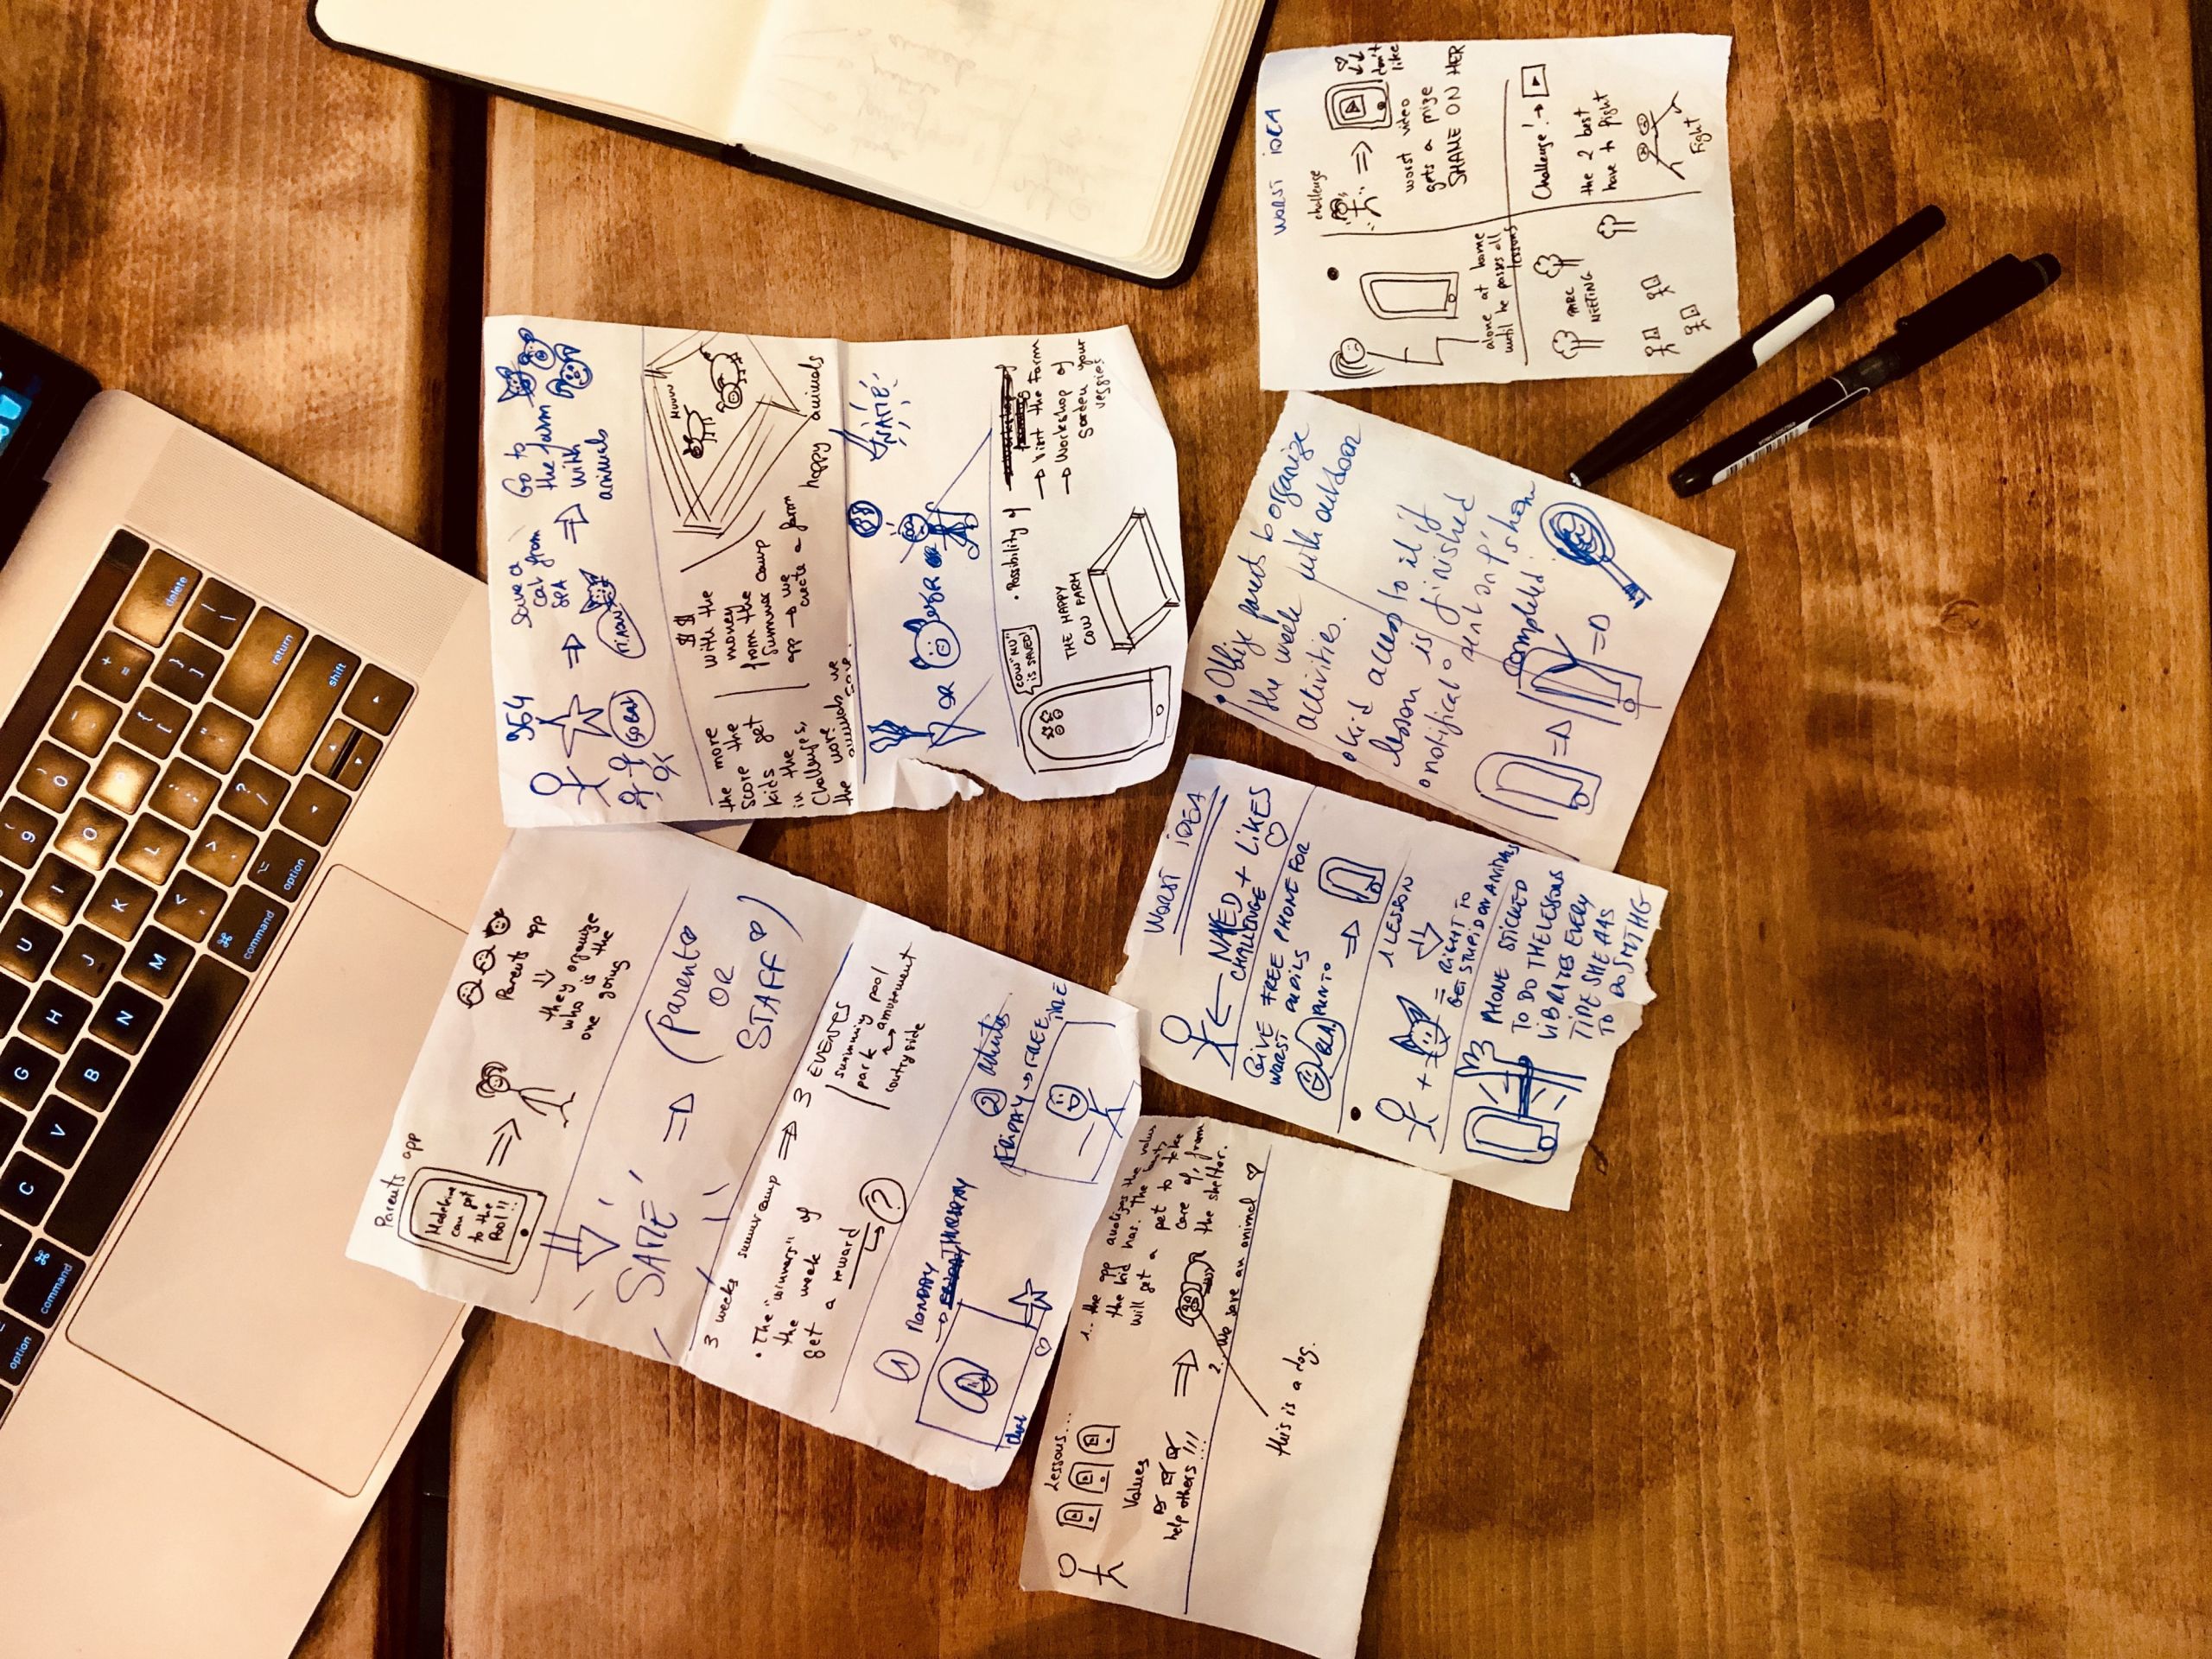 WORST IDEA
challenge
don't
like
worst video
gets a prize
SHAME ON HER
alone at home
until he passes all
lessons
Challenge! →
the 2 best
have to fight
Fight
PARC
MEETING
Save a
cat from
SPA
MIAOU
Go to
the farm
with
animals
GOAL
the more
score the
kids get
in the
Challenges,
the more
animals we
save.
$ $
with the
money
from the
summer camp
app → we
create a farm
MUUUU
happy animals
OR
OR
SAME
• Possibility of
→ Visit the Farm
→ Workshop of
Garden your
veggies
COW "NU"
IS SAVED!
THE HAPPY
COW FARM
• Oblige parents to organize
the week with outdoor
activities.
• kid access to it if
lesson is finished
completed!
WORST IDEA
NAKED
CHALLENGE + LIKES
GIVE FREE PHONE FOR
WORST PUPILS
1 LESSON
= RIGHT TO
GET STUPID AN ANIMAL
PHONE STICKED
TO DO THE LESSONS
VIBRATES EVERY
TIME SHE HAS
TO DO SMTHG
Parents app
Madeleine
can get
to the
Pool !!
Parents app
they organize
who is the
one going
SAME
(Parents
OR
STAFF)
3 weeks summer camp ⇒ 3 EVENTS
swimming pool
park → amusement
coutryside
• The "winners" of
the week
get a reward
?
①
MONDAY
→ THURSDAY
②
FRIDAY → FREE
TIME
Lessons...
Values
help others!!!
1. the app analizes the values
the kid has. Then he/she
will get a pet to take
care of, from
the shelter.
2. We save an animal
this is a dog.
delete
return
shift
option
command
option
command